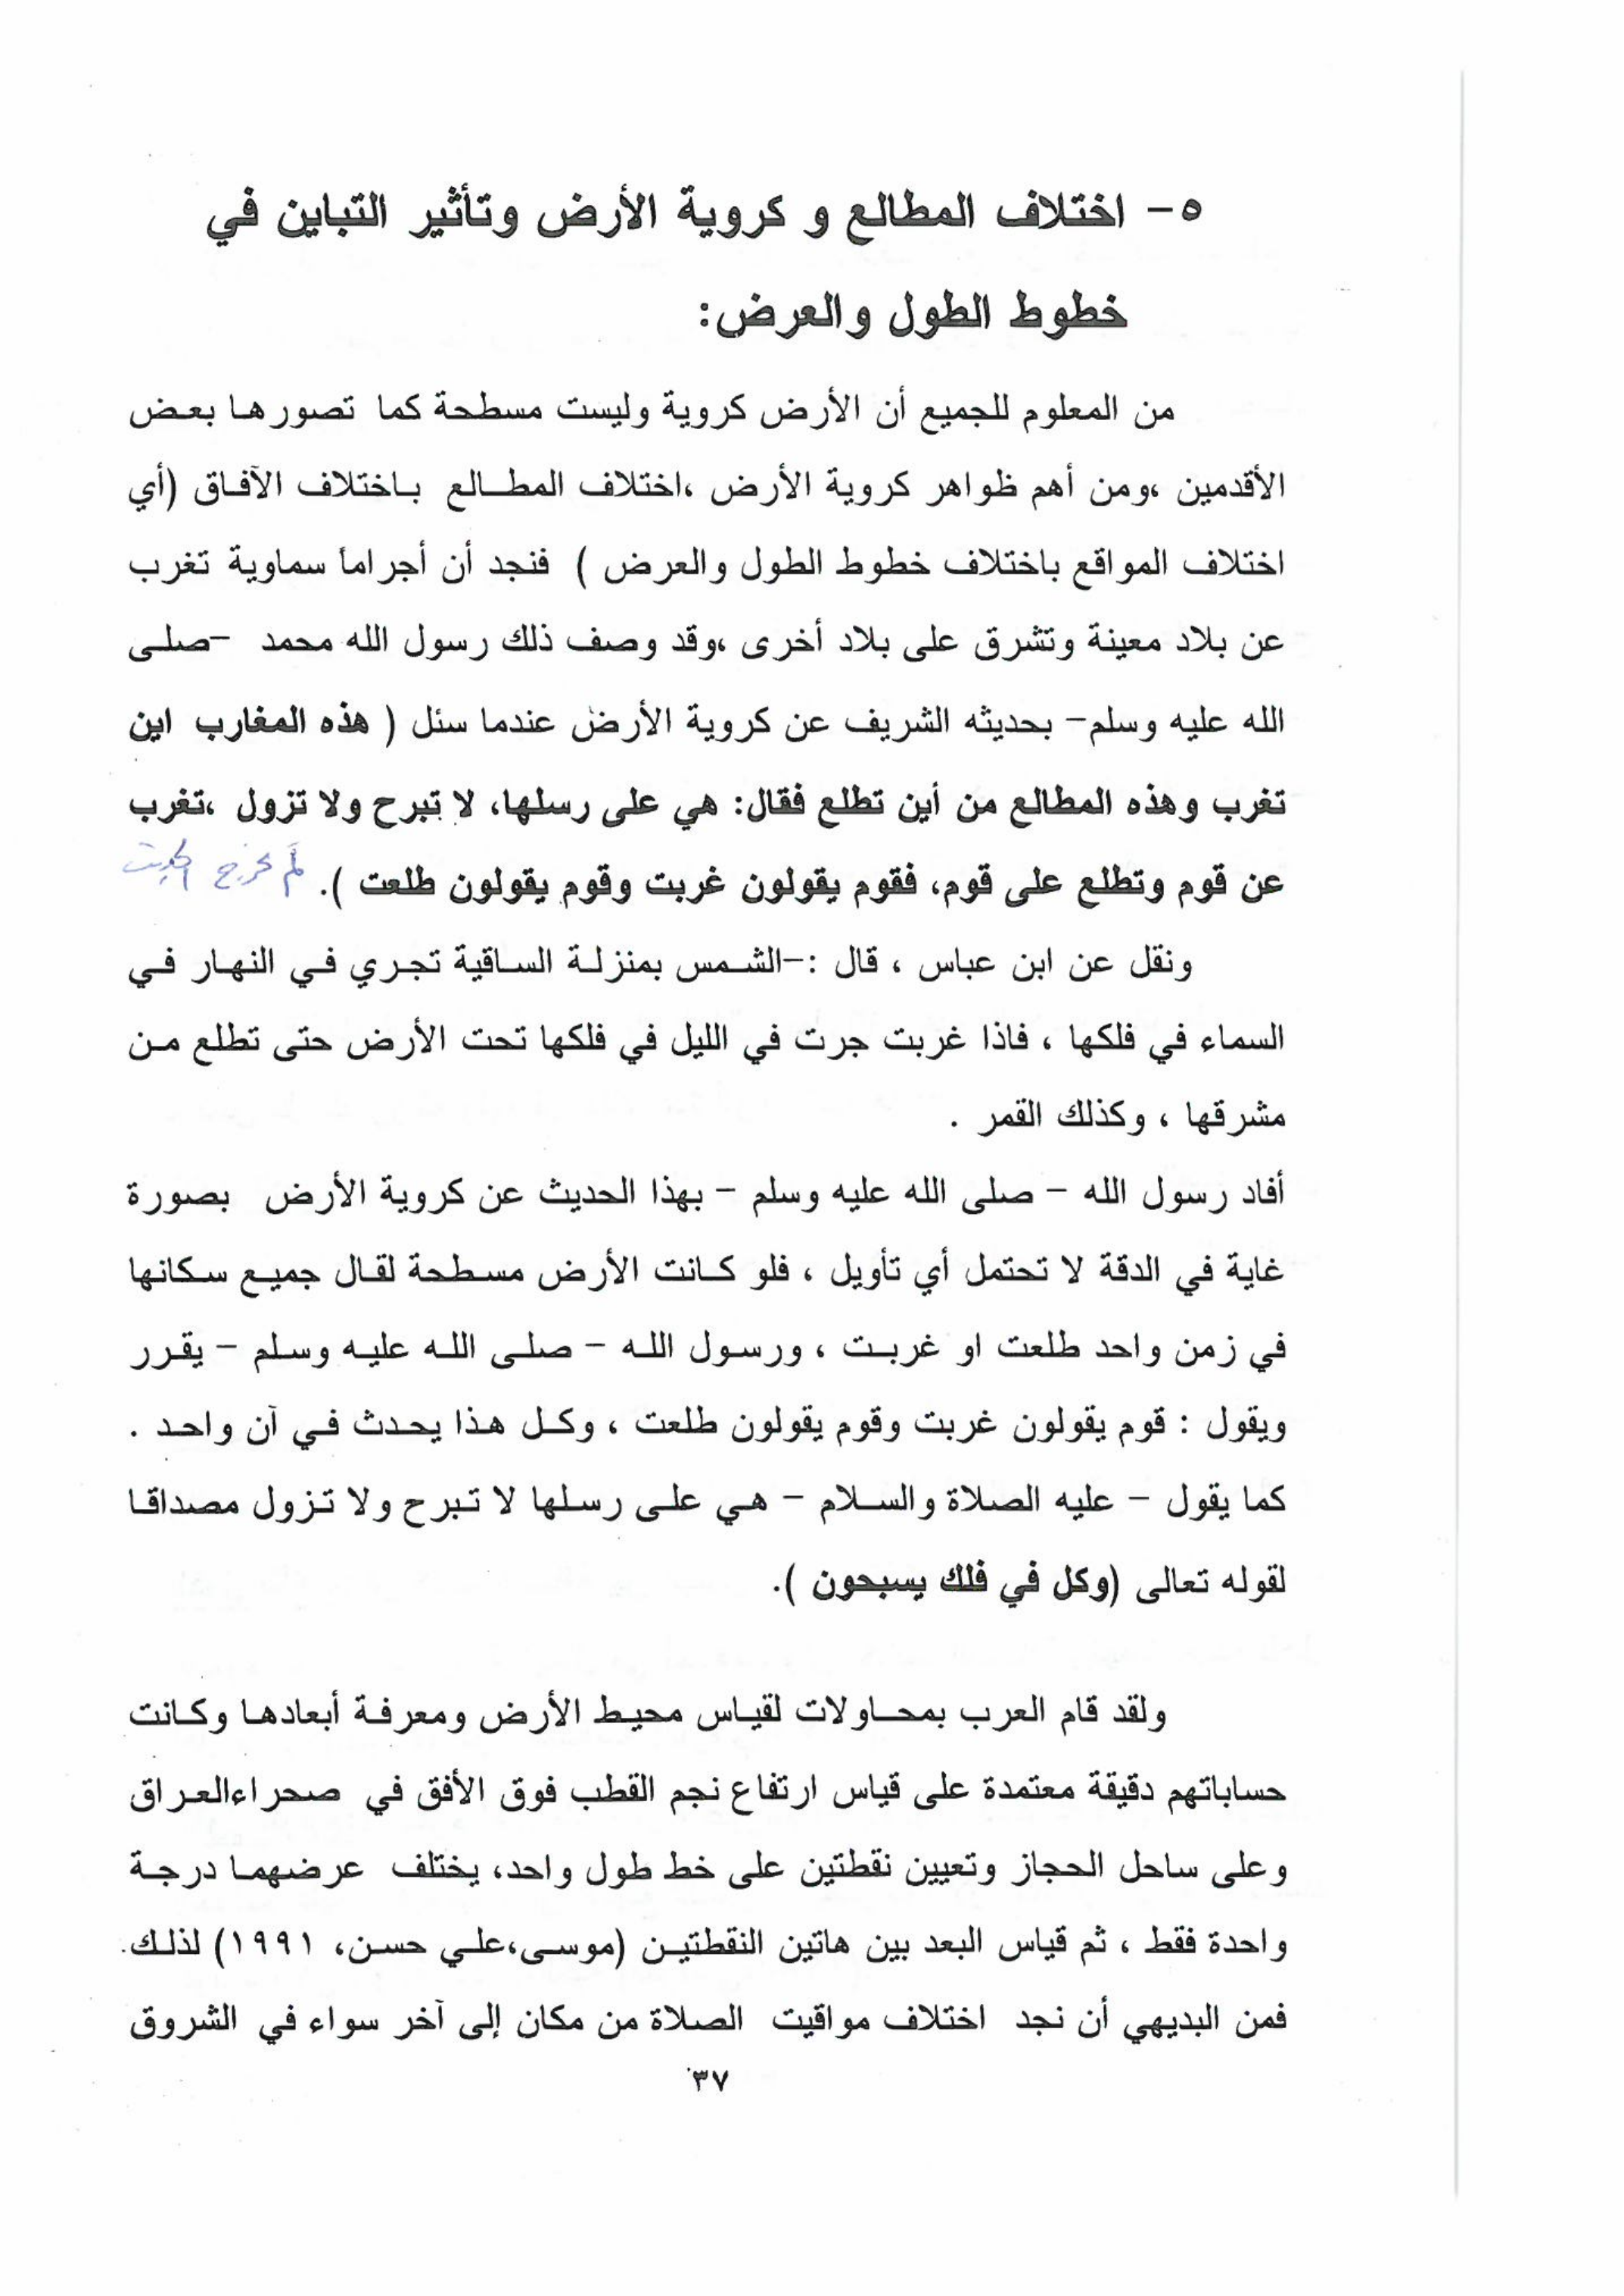 ٥- اختلاف المطالع و كروية الأرض وتأثير التباين في
خطوط الطول والعرض:
من المعلوم للجميع أن الأرض كروية وليست مسطحة كما تصورها بعض
الأقدمين ،ومن أهم ظواهر كروية الأرض ،اختلاف المطالع باختلاف الآفاق (أي
اختلاف المواقع باختلاف خطوط الطول والعرض ) فنجد أن أجراماً سماوية تغرب
عن بلاد معينة وتشرق على بلاد أخرى ،وقد وصف ذلك رسول الله محمد -صلى
الله عليه وسلم- بحديثه الشريف عن كروية الأرض عندما سئل ( هذه المغارب اين
تغرب وهذه المطالع من أين تطلع فقال: هي على رسلها، لا تبرح ولا تزول ،تغرب
عن قوم وتطلع على قوم، فقوم يقولون غربت وقوم يقولون طلعت ). لم يخرج الحديث
ونقل عن ابن عباس ، قال :-الشمس بمنزلة الساقية تجري في النهار في
السماء في فلكها ، فاذا غربت جرت في الليل في فلكها تحت الأرض حتى تطلع من
مشرقها ، وكذلك القمر .
أفاد رسول الله - صلى الله عليه وسلم - بهذا الحديث عن كروية الأرض بصورة
غاية في الدقة لا تحتمل أي تأويل ، فلو كانت الأرض مسطحة لقال جميع سكانها
في زمن واحد طلعت او غربت ، ورسول الله - صلى الله عليه وسلم - يقرر
ويقول : قوم يقولون غربت وقوم يقولون طلعت ، وكل هذا يحدث في آن واحد .
كما يقول - عليه الصلاة والسلام - هي على رسلها لا تبرح ولا تزول مصداقا
لقوله تعالى (وكل في فلك يسبحون ).
ولقد قام العرب بمحاولات لقياس محيط الأرض ومعرفة أبعادها وكانت
حساباتهم دقيقة معتمدة على قياس ارتفاع نجم القطب فوق الأفق في صحراءالعراق
وعلى ساحل الحجاز وتعيين نقطتين على خط طول واحد، يختلف عرضهما درجة
واحدة فقط ، ثم قياس البعد بين هاتين النقطتين (موسى،علي حسن، ١٩٩١) لذلك
فمن البديهي أن نجد اختلاف مواقيت الصلاة من مكان إلى آخر سواء في الشروق
٣٧